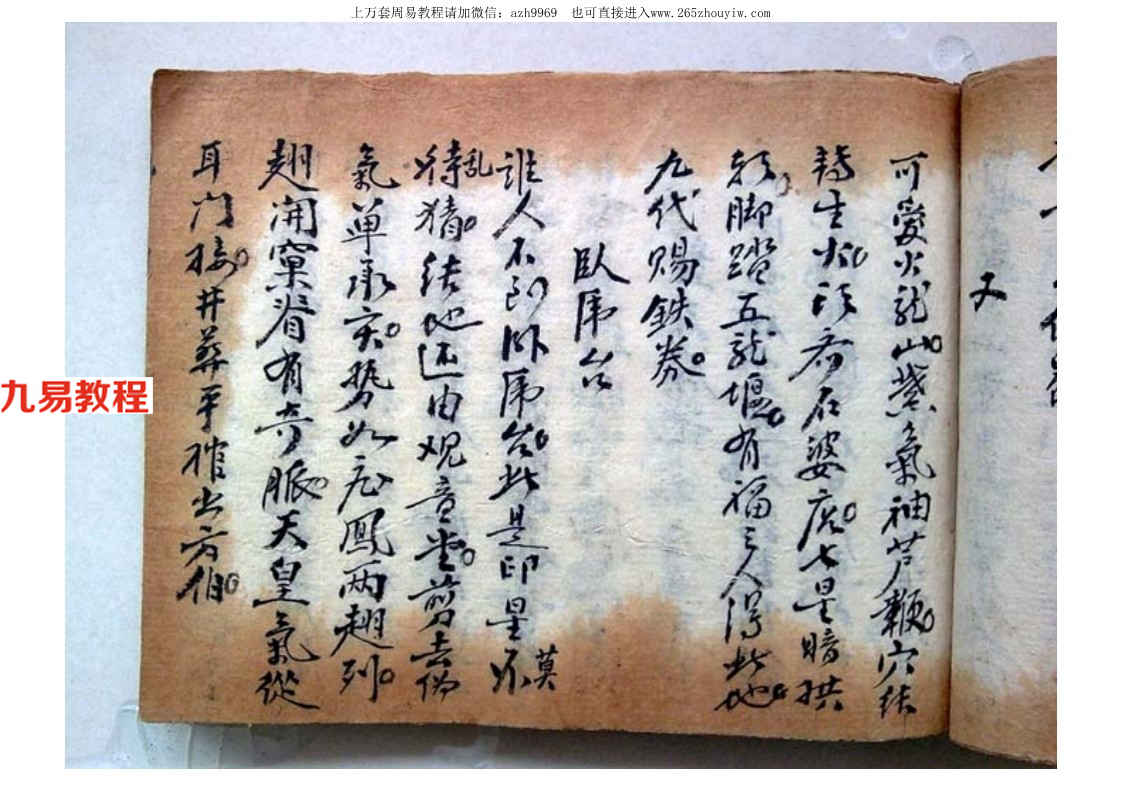 上万套周易教程请加微信：azh9969 也可直接进入www.265zhouyiw.com
又
可愛火龍山。紫氣袖芦鞭。穴结
生火形。石婆店。七星暗拱
脚踏五龍堰。有福之人得此地。
九代赐鉄券。
臥虎台
誰人不卧虎台。此是印星莫
乱猜。结地还由观音堂。剪去偽
氣单承亥。势如飛鳳两翅列。
翅開窠有奇脈。天皇氣從
耳门接。井葬平出方伯。
九易教程